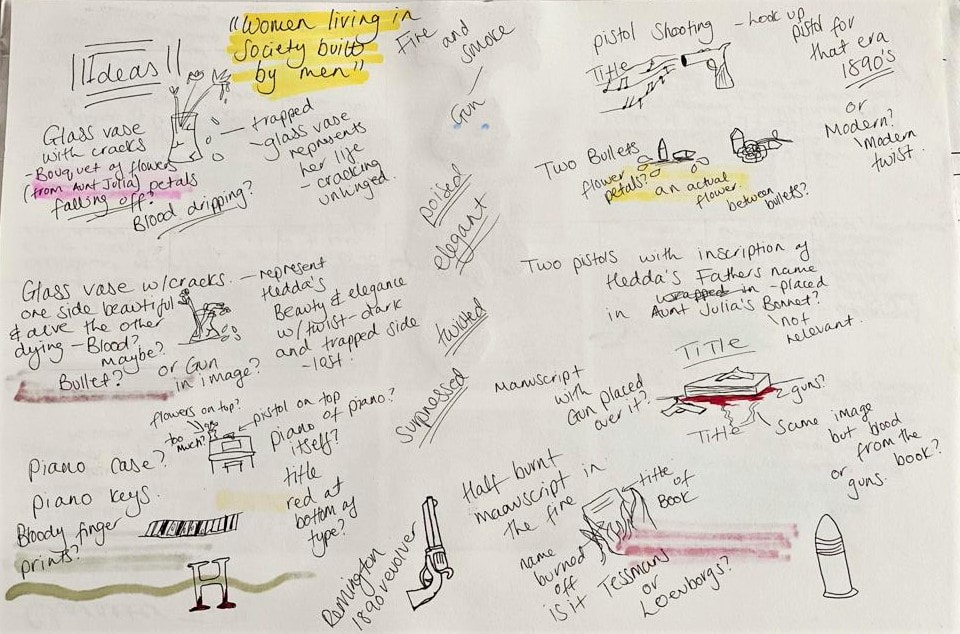 Ideas
"Women living in
Society built
by men"
Glass vase
with cracks
- Bouquet of flowers
(from Aunt Julia) petals
falling off?
Blood dripping?
- trapped
- glass vase
represents
her life
- cracking
unhinged.
Glass vase w/cracks.
one side beautiful
& alive the other
dying - Blood?
maybe?
Bullet?
or Gun
in image?
- represent
Hedda's
Beauty & elegance
w/ twist - dark
and trapped side
- last!
flowers on top?
too
much?
pistol on top
of piano?
Piano case?
piano
itself?
title
red at
bottom of
type?
Piano keys.
Bloody finger
prints?
H
Fire and smoke
- Gun
poised
elegant
twisted
suppressed
Remington
1890 revolver
Pistol Shooting - Look up
pistol for
that era
1890's
or
Modern?
Modern
twist.
Title
Two Bullets
flower
petals? an actual
flower.
between
bullets?
Two pistols with inscription of
Hedda's Fathers name
wrapped in - placed
in Aunt Julia's Bonnet?
not
relevant.
TITLE
Manuscript
with
Gun placed
over it?
guns?
Title
Same image
but blood
from the
book?
or
guns.
Half burnt
manuscript in
the fire
title of
Book
name
burned
off
is it Tessmans
or
Loevborgs?